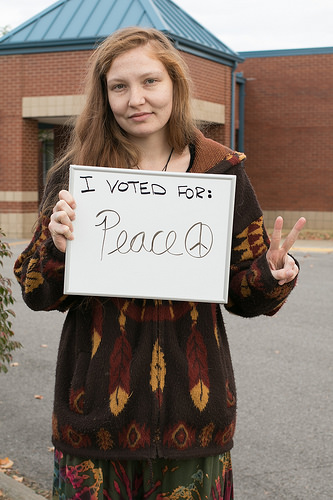 I VOTED FOR:
Peace ☮